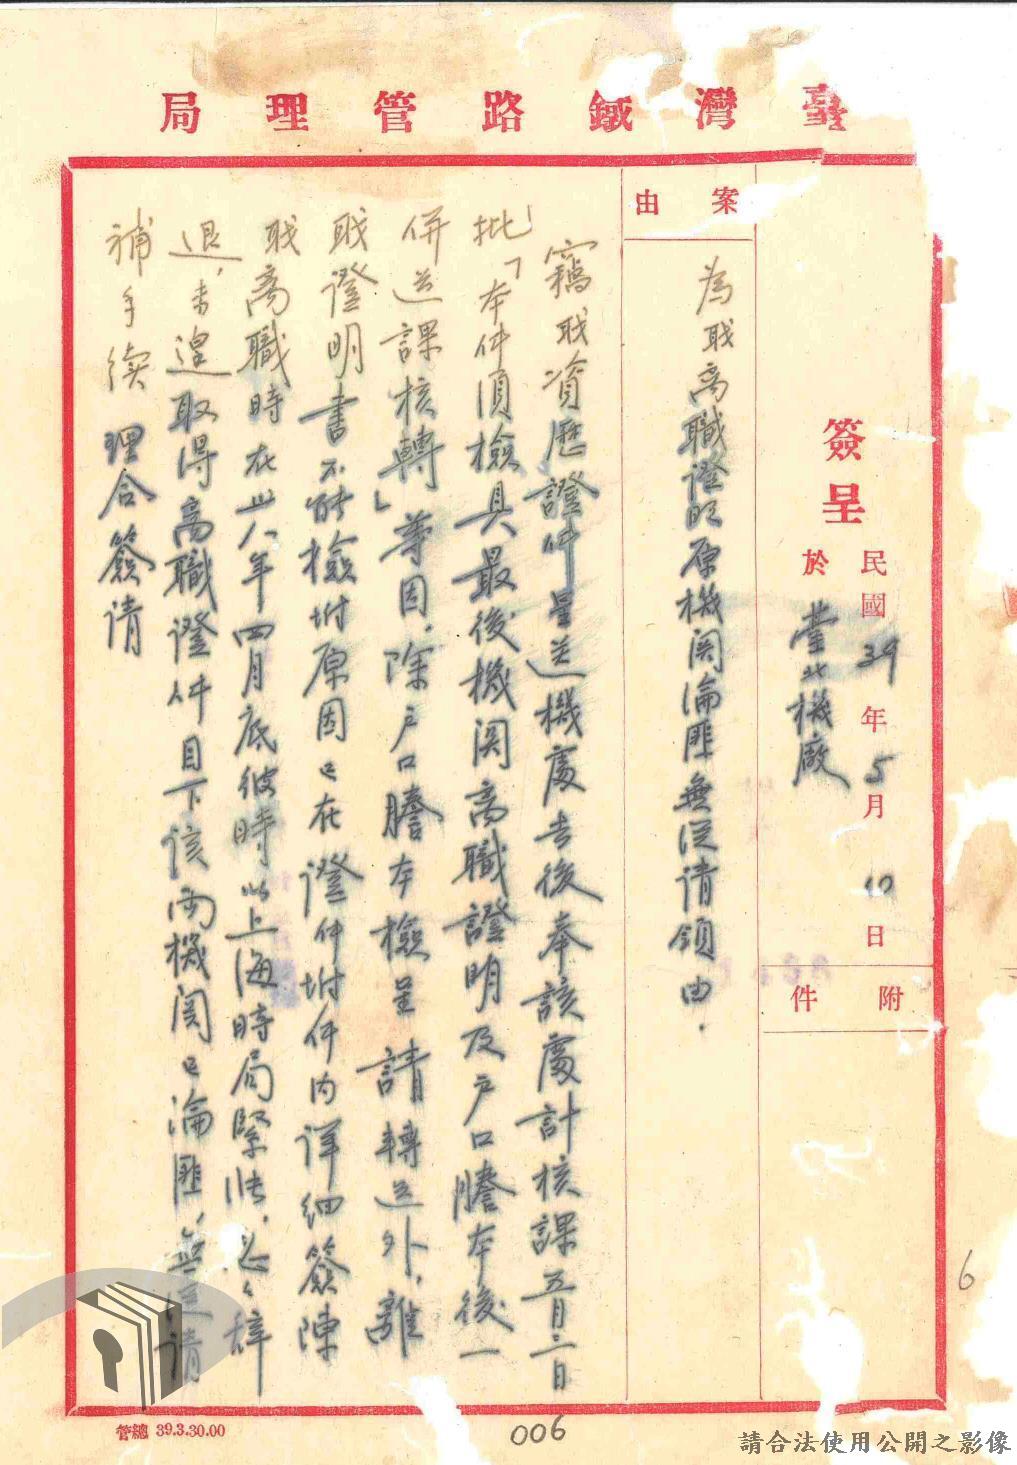 臺灣鐵路管理局
簽呈
民國39年5月10日
於臺北機廠
附件
案由
為職离職證明原機関淪匪無從请領由.
竊职資歷證件呈送機處去後奉該處計核課五月三日
批「本件須檢具最後機関离職證明及户口謄本後一
併送課核轉」等因.除户口謄本檢呈請轉送外,離
职證明書不能檢坿原因已在證件坿件内详细簽陳
职离職時在卅八年四月底彼時以上海時局緊张.忽々辞
退,未遑取得离職證件目下該両機関已淪匪,無從请
補手续理合簽请
管總 39.3.30.00
006
6
請合法使用公開之影像